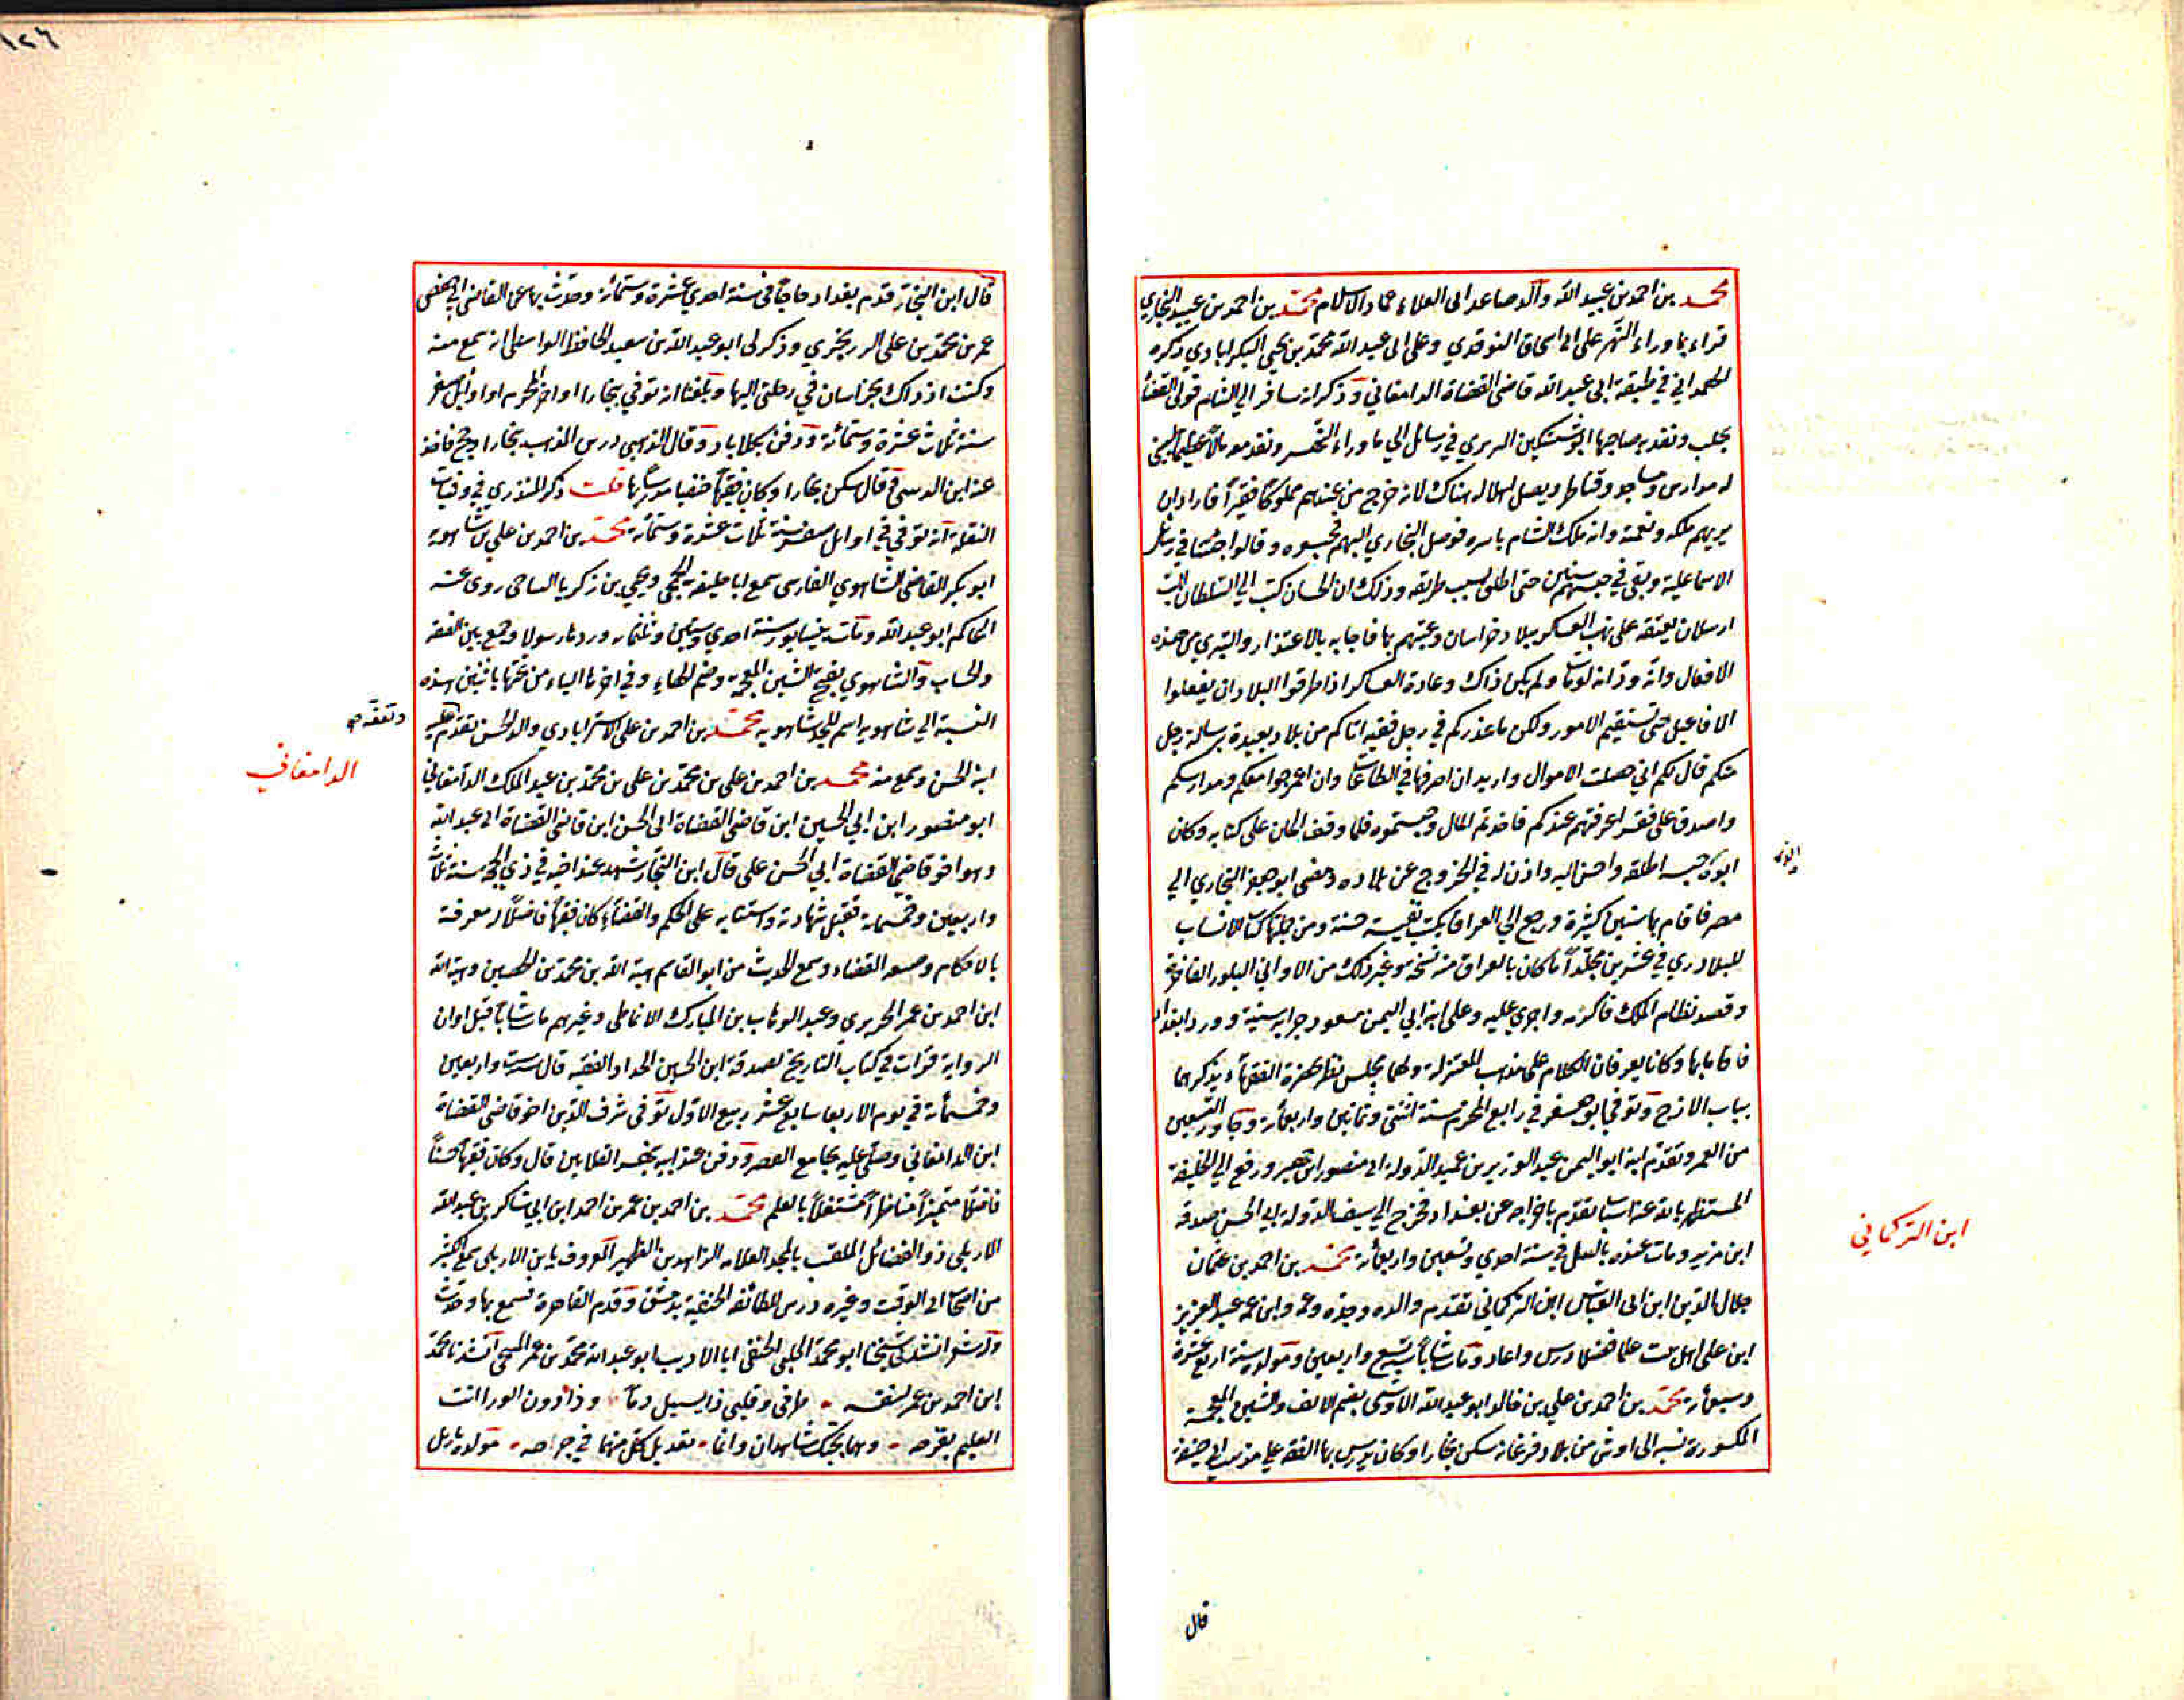 محمد بن احمد بن عبيد الله والد صاعد ابى العلاء عماد الاسلام محمد بن احمد بن عبيد البخاري
قراء بما وراء النهر على ابى اسحاق النوقدي وعلى ابى عبد الله محمد بن يحيى البكرابادي ذكره
الهمداني في طبقة ابى عبد الله قاضى القضاة الدامغاني وذكر انه سافر الى الشام فولى القضاء
بحلب ونفذ به صاحبها انوشتكين الدزبري في رسائل الى ما وراء النهر ونفذ معه مالا عظيما ليبنى
له مدارس ومساجد وقناطر ويصل اهلا له هناك لانه خرج من عندهم مملوكا فقيرا فاراد ان
يريهم ملكه ونعمته وانه ملك الشام باسره فوصل البخاري اليهم فحبسوه وقالوا جئتنا في رسائل
الاسماعيلية وبقى في حبسهم سنين حتى اطلق بسبب طريقه وذلك ان الخان كتب الى السلطان الب
ارسلان يعتبه على نهب العسكر ببلاد خراسان وعبثهم بها فاجابه بالاعتذار والتبري من هذه
الافعال وانه ود انه لو مات ولم يكن ذاك وعادة العساكر اذا طرقوا البلاد ان يفعلوا
الافاعيل حتى تستقيم الامور ولكن ما عذركم في رجل فقيه اتاكم من بلاد بعيدة برسالة رجل
منكم قال لكم اني حصلت الاموال واريد ان اصرفها في الطاعات وان اعمر جوامعكم ومدارسكم
واصدق على فقراء اعرفهم عندكم فاخذتم المال وحبستموه فلما وقف الخان على كتابه وكان
ابوه حبسه اطلقه واحسن اليه واذن له في الخروج عن بلاده ومضى ابو جعفر البخاري الى
مصر فاقام بها سنين كثيرة ورجع الى العراق بكتب نفيسة حسنة ومن جملتها كتاب الانساب
للبلاذري في عشرين مجلدا ما كان بالعراق منه نسخة وغير ذلك من الاواني البلور الفاخرة
وقصد نظام الملك فاكرمه واجرى عليه وعلى ابنه ابي اليمن مسعود جراية سنية وورد ابغداد
فاقاما بها وكانا يعرفان الكلام على مذهب المعتزلة ولهما مجلس نظر يحضره الفقهاء يذكر هما
بباب الازج وتوفي ابو جعفر في رابع المحرم سنة اثنتى وثمانين واربعمائة وجاوز التسعين
من العمر وتقدم ابنه ابو اليمن عبد الوزير بن عميد الدولة ابى منصور ابن جهير ورفع الى الخليفة
المستظهر بالله عنه اسبابا تقدم باخراجه عن بغداد فخرج الى سيف الدولة ابى الحسن صدقه
ابن مزيد ومات عنده بالحلة في سنة احدي وتسعين واربعمائة محمد بن احمد بن عثمان
جلال الدين ابن ابى العباس ابن التركماني تقدم والده وجده وعمه وابن عمه عبد العزيز
ابن على اهل بيت علما فضلا درس واعاد ومات شابا سنة تسع واربعين ومولده سنة اربع عشرة
وسبعمائة محمد بن احمد بن على بن خالد ابو عبد الله الاوشى بضم الالف والشين المعجمة
المكسورة نسبة الى اوش من بلاد فرغانه سكن بخارا وكان يدرس بها الفقه على مذهب ابى حنيفة
ابن التركماني
قال
١٢٦
قال ابن النجار قدم بغداد حاجا في سنة احدي عشرة وستمائة وحدث بها عن القاضى ابى حفص
عمر بن محمد بن على الزرنجري وذكر لى ابو عبد الله بن سعيد الحافظ الواسطى انه سمع منه
وكنت اذ ذاك بخراسان في رحلتى اليها وبلغنا انه توفي ببخارا اواخر المحرم او اوائل صفر
سنة ثلاث عشرة وستمائة ودفن بكلاباد وقال الذهبي درس المذهب ببخارا وحج فاخذ
عنه ابن الدبيثى قال سكن بخارا وكان فقيها حنفيا مدرسا بها قلت ذكر المنذري في وفيات
النقلة انه توفي في اوايل صفر سنة ثلاث عشرة وستمائة محمد بن احمد بن علي بن شاهويه
ابو بكر القاضى الشاهوي الفارسى سمع ابا خليفة الجمحى ويحيى بن زكريا الساجى روى عنه
الحاكم ابو عبد الله ومات بنيسابور سنة احدي وستين وثلثمائة ورد بها رسولا وجمع بين الفقه
والحساب والشاهوي بفتح الشين المعجمة وضم الهاء وفي اخرها الياء من تحتها باثنين هذه
النسبة الى شاهويه اسم للجد شاهويه محمد بن احمد بن على الاسترابادي والد الحسن تقدم عليه
ابنه الحسن وسمع منه محمد بن احمد بن على بن محمد بن على بن محمد بن عبد الملك الدامغاني
ابو منصور ابن ابي الحسين ابن قاضى القضاة ابى الحسن ابن قاضى القضاة ابى عبد الله
وهو اخو قاضى القضاة ابي الحسن على قال ابن النجار شهد عند اخيه في ذي الحجة سنة ثلاث
واربعين وخمسمائة فقبل شهادته واستنابه على الحكم والقضاء كان فقيها فاضلا له معرفة
بالاحكام وصنعة القضاء وسمع الحديث من ابو القاسم هبة الله بن محمد بن الحصين وهبة الله
ابن احمد بن عمر الحريري وعبد الوهاب بن المبارك الانماطى وغيرهم مات شابا قبل اوان
الرواية قرات في كتاب التاريخ لصدقة ابن الحسين الحداد الفقيه قال سنة ست واربعين
وخمسمائة في يوم الاربعا سابع عشر ربيع الاول توفى شرف الدين اخو قاضى القضاة
ابن الدامغاني وصلى عليه بجامع القصر ودفن عند ابيه بنهر القلايين قال وكان فقيها حسنا
فاضلا متميزا مناظرا مشتغلا بالعلم محمد بن احمد بن عمر بن احمد ابن ابي شاكر بن عبد الله
الاربلى ذو الفضائل الملقب بالمجد العلامه الزاهد بن الظهير المعروف بابن الاربلى سمع الكثير
من اصحاب ابى الوقت وغيره درس للطائفه الحنفية بدمشق وقدم القاهرة فسمع بها وحدث
وله شعر انشدنى شيخنا ابو محمد الحلبى الحنفى انا الاديب ابو عبد الله محمد بن عمر المسبحى انشدنا محمد
ابن احمد بن عمر لنفسه طرفى وقلبى ذا يسيل دما وذا دون الورا انت
العليم بقرحه وهما بحبك شاهدان وانما تعديل كل منهما في جرحه مولده باربل
وتفقه
الدامغاني